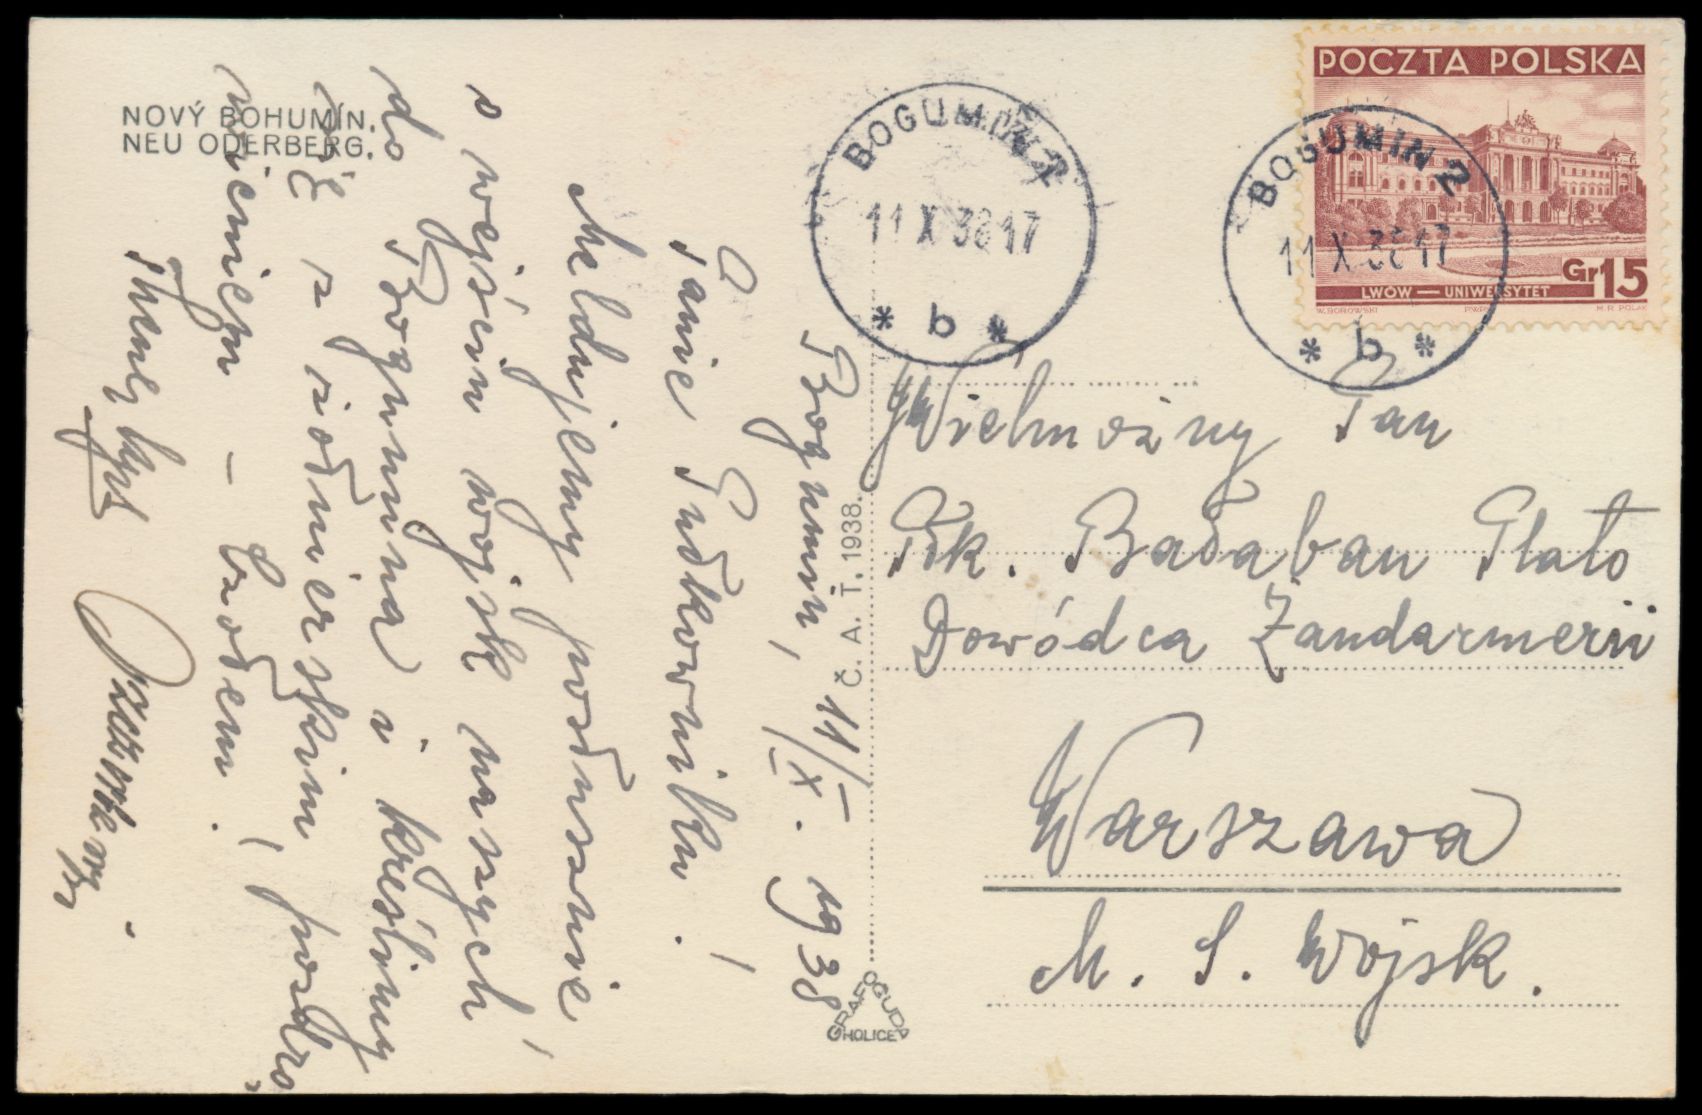 NOVÝ BOHUMÍN.
NEU ODERBERG.
Bogumin, 11/X. 1938
Panie Pułkowniku!
Meldujemy posłusznie
o wejściu wojsk naszych
do Bogumina i kreślimy
się z żołnierskim pozdro
wieniem – czołem!
Č. A. T. 1938.
GRAFO
OGUDA
HOLICE
BOGUMIN 2
11 X 38 17
* b *
BOGUMIN 2
11 X 38 17
* b *
POCZTA POLSKA
Gr 15
LWÓW — UNIWERSYTET
W. BOROWSKI
P.W.P.W.
M. R. POLAK
Wielmożny Pan
Płk. Bałaban Plato
Dowódca Żandarmerii
Warszawa
M. S. Wojsk.